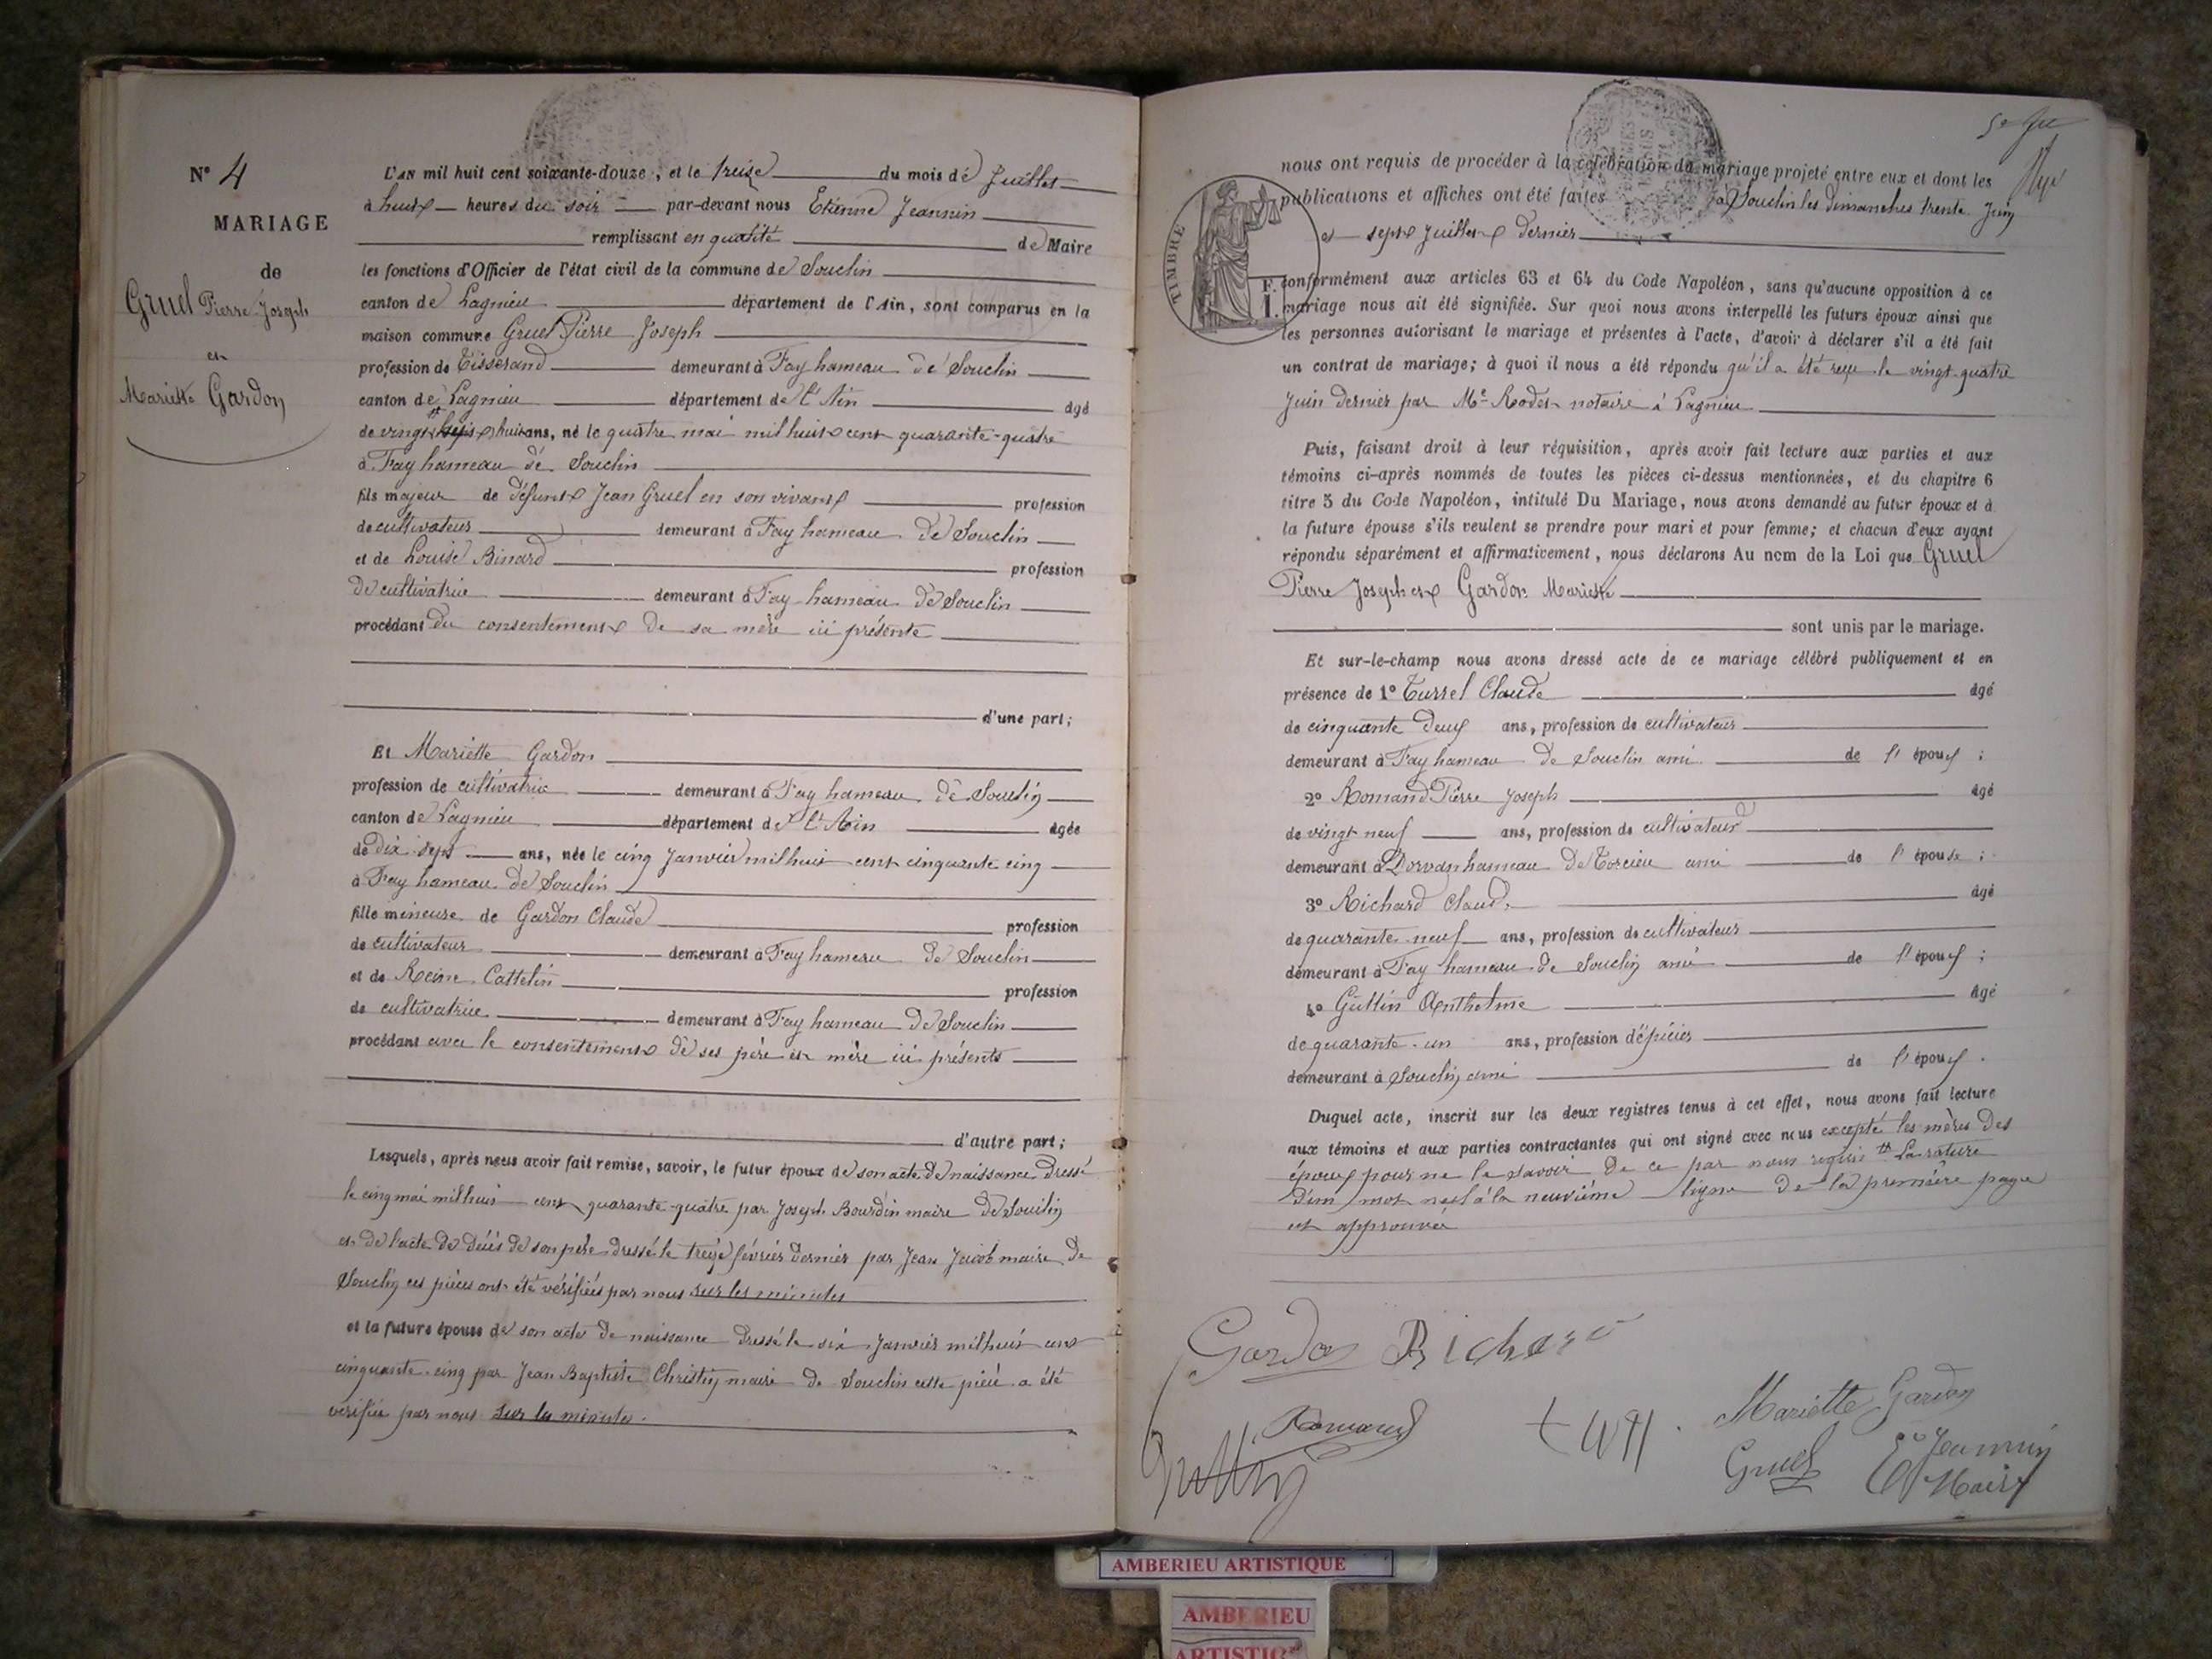 N° 4
MARIAGE
de
Gruel Pierre Joseph
et
Mariette Gardon
L'AN mil huit cent soixante-douze, et le treize du mois de Juillet
à huit heures du soir par-devant nous Etienne Jeannin
remplissant en qualité de Maire
les fonctions d'Officier de l'état civil de la commune de Souclin
canton de Lagnieu département de l'Ain, sont comparus en la
maison commune Gruel Pierre Joseph
profession de Tisserand demeurant à Fay hameau de Souclin
canton de Lagnieu département de l'Ain âgé
de vingt huit ans, né le quatre mai mil huit cent quarante-quatre
à Fay hameau de Souclin
fils majeur de défunt Jean Gruel en son vivant profession
de cultivateur demeurant à Fay hameau de Souclin
et de Louise Binard profession
de cultivatrice demeurant à Fay hameau de Souclin
procédant du consentement de sa mère ici présente
d'une part;
Et Mariette Gardon
profession de cultivatrice demeurant à Fay hameau de Souclin
canton de Lagnieu département de l'Ain âgée
de dix-sept ans, née le cinq Janvier mil huit cent cinquante cinq
à Fay hameau de Souclin
fille mineure de Gardon Claude profession
de cultivateur demeurant à Fay hameau de Souclin
et de Reine Cattelin profession
de cultivatrice demeurant à Fay hameau de Souclin
procédant avec le consentement de ses père et mère ici présents
d'autre part;
Lesquels, après nous avoir fait remise, savoir, le futur époux de son acte de naissance dressé
le cinq mai mil huit cent quarante-quatre par Joseph Bourdin maire de Souclin
et de l'acte de décès de son père dressé le treize février dernier par Jean Jacob maire de
Souclin ces pièces ont été vérifiées par nous sur les minutes
et la future épouse de son acte de naissance dressé le six Janvier mil huit cent
cinquante-cinq par Jean Baptiste Christin maire de Souclin cette pièce a été
vérifiée par nous sur les minutes.
nous ont requis de procéder à la célébration du mariage projeté entre eux et dont les
publications et affiches ont été faites à Souclin les dimanches trente Juin
et sept Juillet dernier
TIMBRE
conformément aux articles 63 et 64 du Code Napoléon, sans qu'aucune opposition à ce
mariage nous ait été signifiée. Sur quoi nous avons interpellé les futurs époux ainsi que
les personnes autorisant le mariage et présentes à l'acte, d'avoir à déclarer s'il a été fait
un contrat de mariage; à quoi il nous a été répondu qu'il a été reçu le vingt-quatre
Juin dernier par Me Rodet notaire à Lagnieu
Puis, faisant droit à leur réquisition, après avoir fait lecture aux parties et aux
témoins ci-après nommés de toutes les pièces ci-dessus mentionnées, et du chapitre 6
titre 5 du Code Napoléon, intitulé Du Mariage, nous avons demandé au futur époux et à
la future épouse s'ils veulent se prendre pour mari et pour femme; et chacun d'eux ayant
répondu séparément et affirmativement, nous déclarons Au nom de la Loi que Gruel
Pierre Joseph et Gardon Mariette
sont unis par le mariage.
Et sur-le-champ nous avons dressé acte de ce mariage célébré publiquement et en
présence de 1° Turrel Claude âgé
de cinquante deux ans, profession de cultivateur
demeurant à Fay hameau de Souclin ami de l'époux ;
2° Romand Pierre Joseph âgé
de vingt neuf ans, profession de cultivateur
demeurant à Dorvan hameau de Torcieu ami de l'épouse ;
3° Richard Claude âgé
de quarante-neuf ans, profession de cultivateur
demeurant à Fay hameau de Souclin ami de l'époux ;
4° Guttin Anthelme âgé
de quarante-un ans, profession d'épicier
demeurant à Souclin, ami de l'époux.
Duquel acte, inscrit sur les deux registres tenus à cet effet, nous avons fait lecture
aux témoins et aux parties contractantes qui ont signé avec nous excepté les mères des
époux pour ne le savoir de ce par nous requis La rature
d'un mot nul à la neuvième ligne de la première page
est approuvée
Gardon Richard
Romand
Guttin
Mariette Gardon
Gruel
Et Jeannin
Maire
AMBERIEU ARTISTIQUE
AMBERIEU
ARTISTIQ